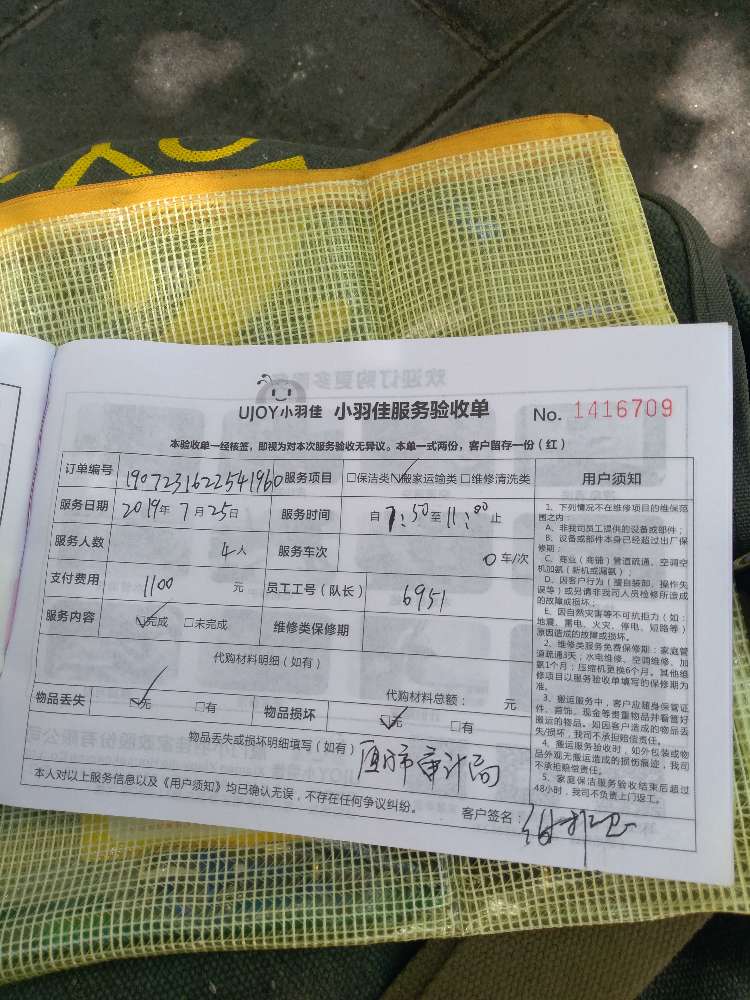 UJOY小羽佳 小羽佳服务验收单 No. 1416709
本验收单一经核签，即视为对本次服务验收无异议。本单一式两份，客户留存一份（红）
订单编号 1907231622541960 服务项目 □保洁类 ☑搬家运输类 □维修清洗类
服务日期 2019年7月25日 服务时间 自7:50至11:00止
服务人数 4人 服务车次 0车/次
支付费用 1100元 员工工号（队长） 6951
服务内容 ☑完成 □未完成 维修类保修期
代购材料明细（如有）
代购材料总额： 元
物品丢失 ☑无 □有 物品损坏 ☑无 □有
物品丢失或损坏明细填写（如有） 审计局
本人对以上服务信息以及《用户须知》均已确认无误，不存在任何争议纠纷。
客户签名：
用户须知
1、下列情况不在维修项目的维保范
围之内：
A、非我司员工提供的设备或部件；
B、设备或部件本身已经超过出厂保
修期；
C、商业（商铺）管道疏通、空调空
机加氨（新机或漏氨）；
D、因客户行为（擅自装卸、操作失
误等）或另请非我司人员检修所造成
的故障或损坏；
E、因自然灾害等不可抗拒力（如：
地震、雷电、火灾、停电、短路等）
原因造成的故障或损坏。
2、维修类服务免费保修期：家庭管
道疏通3天；水电维修、空调维修、加
氨1个月；压缩机更换6个月。其他维
修项目以服务验收单填写的保修期为
准。
3、搬运服务中，客户应随身保管证
件、首饰、现金等贵重物品并看管好
搬运的物品。如因客户造成的物品丢
失/损坏，我司不承担赔偿责任。
4、搬运服务验收时，如外包装或物
品外观无搬运造成的损伤痕迹，我司
不承担赔偿责任。
5、家庭保洁服务验收结束后超过
48小时，我司不负责上门返工。